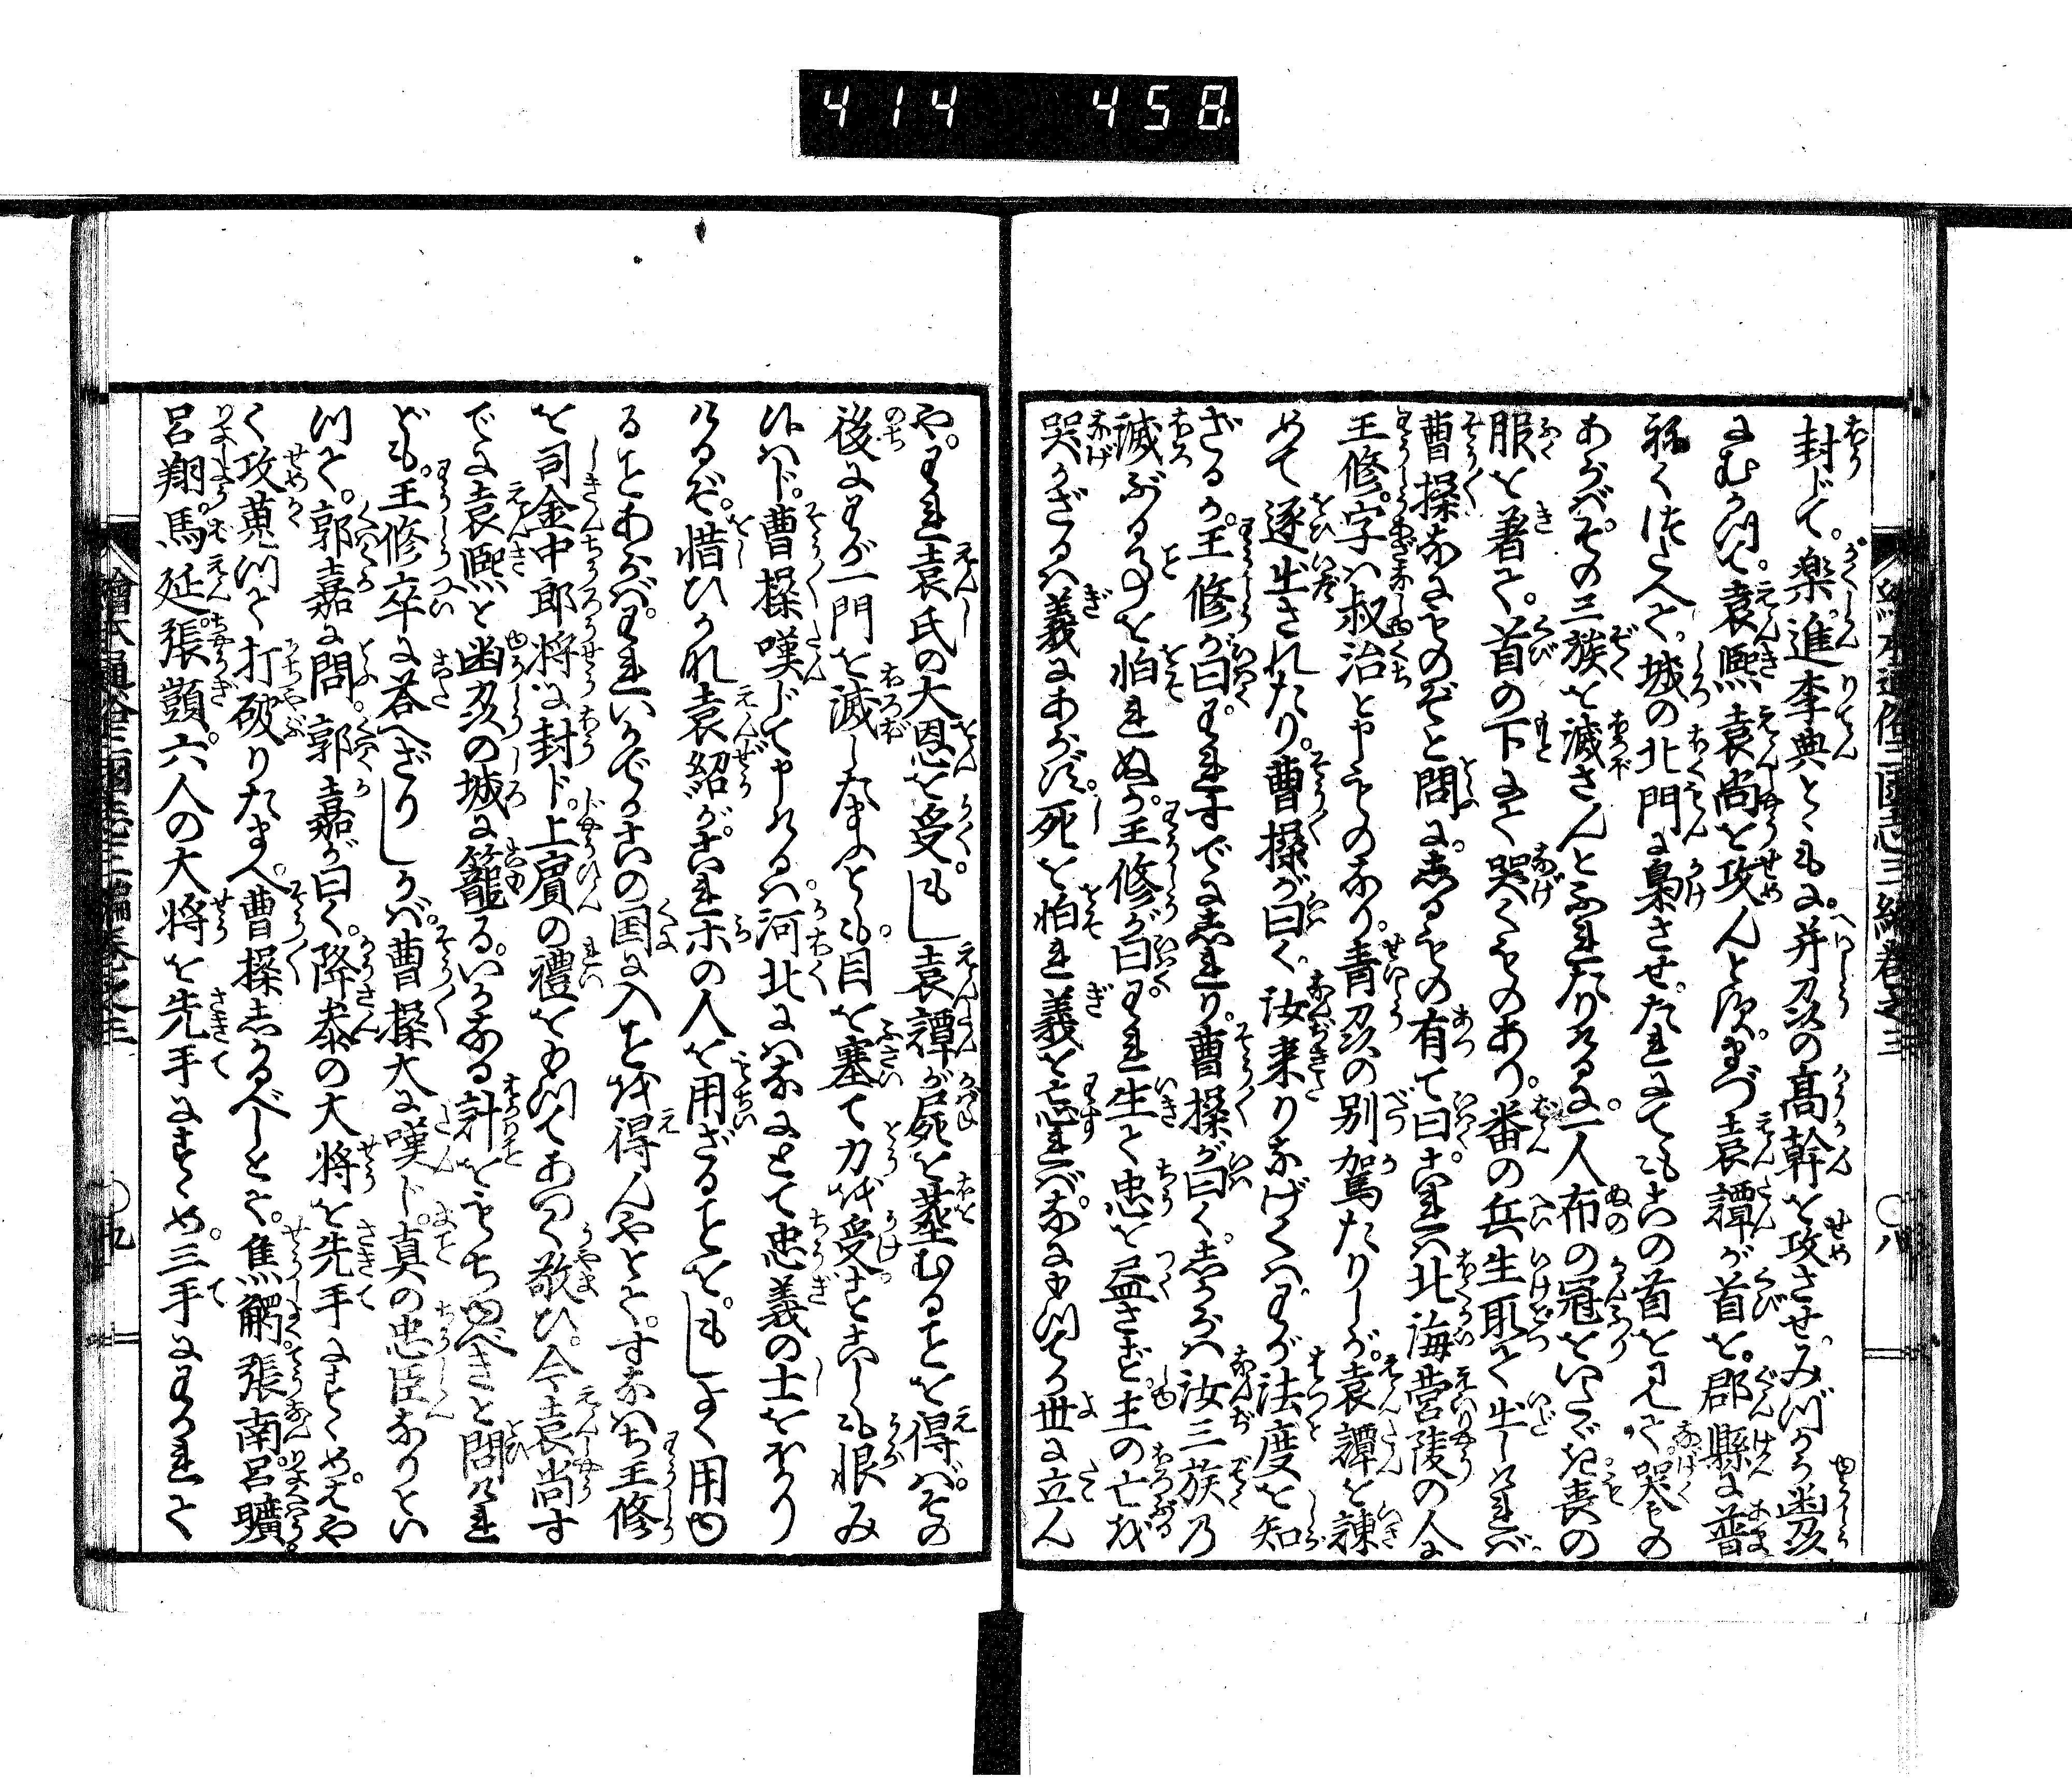 414 458
繪本通俗三國志三編卷之三 〇八
封じて。楽進李典ともに。并州の髙幹を攻させ。みづから幽州
にむかつて。袁熈袁尚を攻んとす。まづ袁譚が首を。郡縣に普
ねくつたへて。城の北門に梟させ。たれにてもこの首を見て。哭もの
あらば。その三族を滅さんとふれたりけるに。一人布の冠をいたゞき喪の
服を著て。首の下にて哭くものあり。番の兵生取て出しければ
曹操なにものぞと問に。しるもの有て曰。これハ北海営陵の人
王修。字ハ叔治と申ものなり。青州の別駕たりしが。袁譚を諫
めて逐出されたり。曹操が曰く。汝来りなげくハわが法度を知
ざるか。王修が曰。われすでにしれり。曹操が曰く。しからバ汝三族の
滅ぶる事を怕れぬか。王修が曰。われ生て忠を益さず。主の亡を
哭かざるハ義にあらず。死を怕れ義を忘れバ。なにゆつてか世に立ん
や。われ袁氏の大恩を受。もし袁譚が屍を葬むることを得バ。その
後にわが一門を滅したまふとも。目を塞て刀を受ことすこしも恨み
候ハド。曹操嘆じて申けるハ。河北にハなにとて忠義の士をほかり
けるぞ。惜ひかれ袁紹が。これ木の人を用ざることを。もしよく用ゆ
ることあらバ。われいかでかこの国に入ことを得んやとて。すなハち王修
を司金中郎将に封ド。上賓の禮をゆつてあつく敬ひ。今袁尚す
でに袁熈と幽州の城に籠る。いかなる計をもちゆべきと問けれ
ども。王修卒に荅へざりしかバ。曹操大に嘆じ。真の忠臣なりとい
つて。郭嘉に問。郭嘉が曰く。降参の大将を先手にすゝめ。はや
く攻蒐つて打破りたまへ。曹操しかるべしとて。焦觸。張南。呂曠。
呂翔。馬延。張顗。六人の大将を先手にすゝめ。三手にわかれて
繪本通俗三國志三編卷之三 〇九